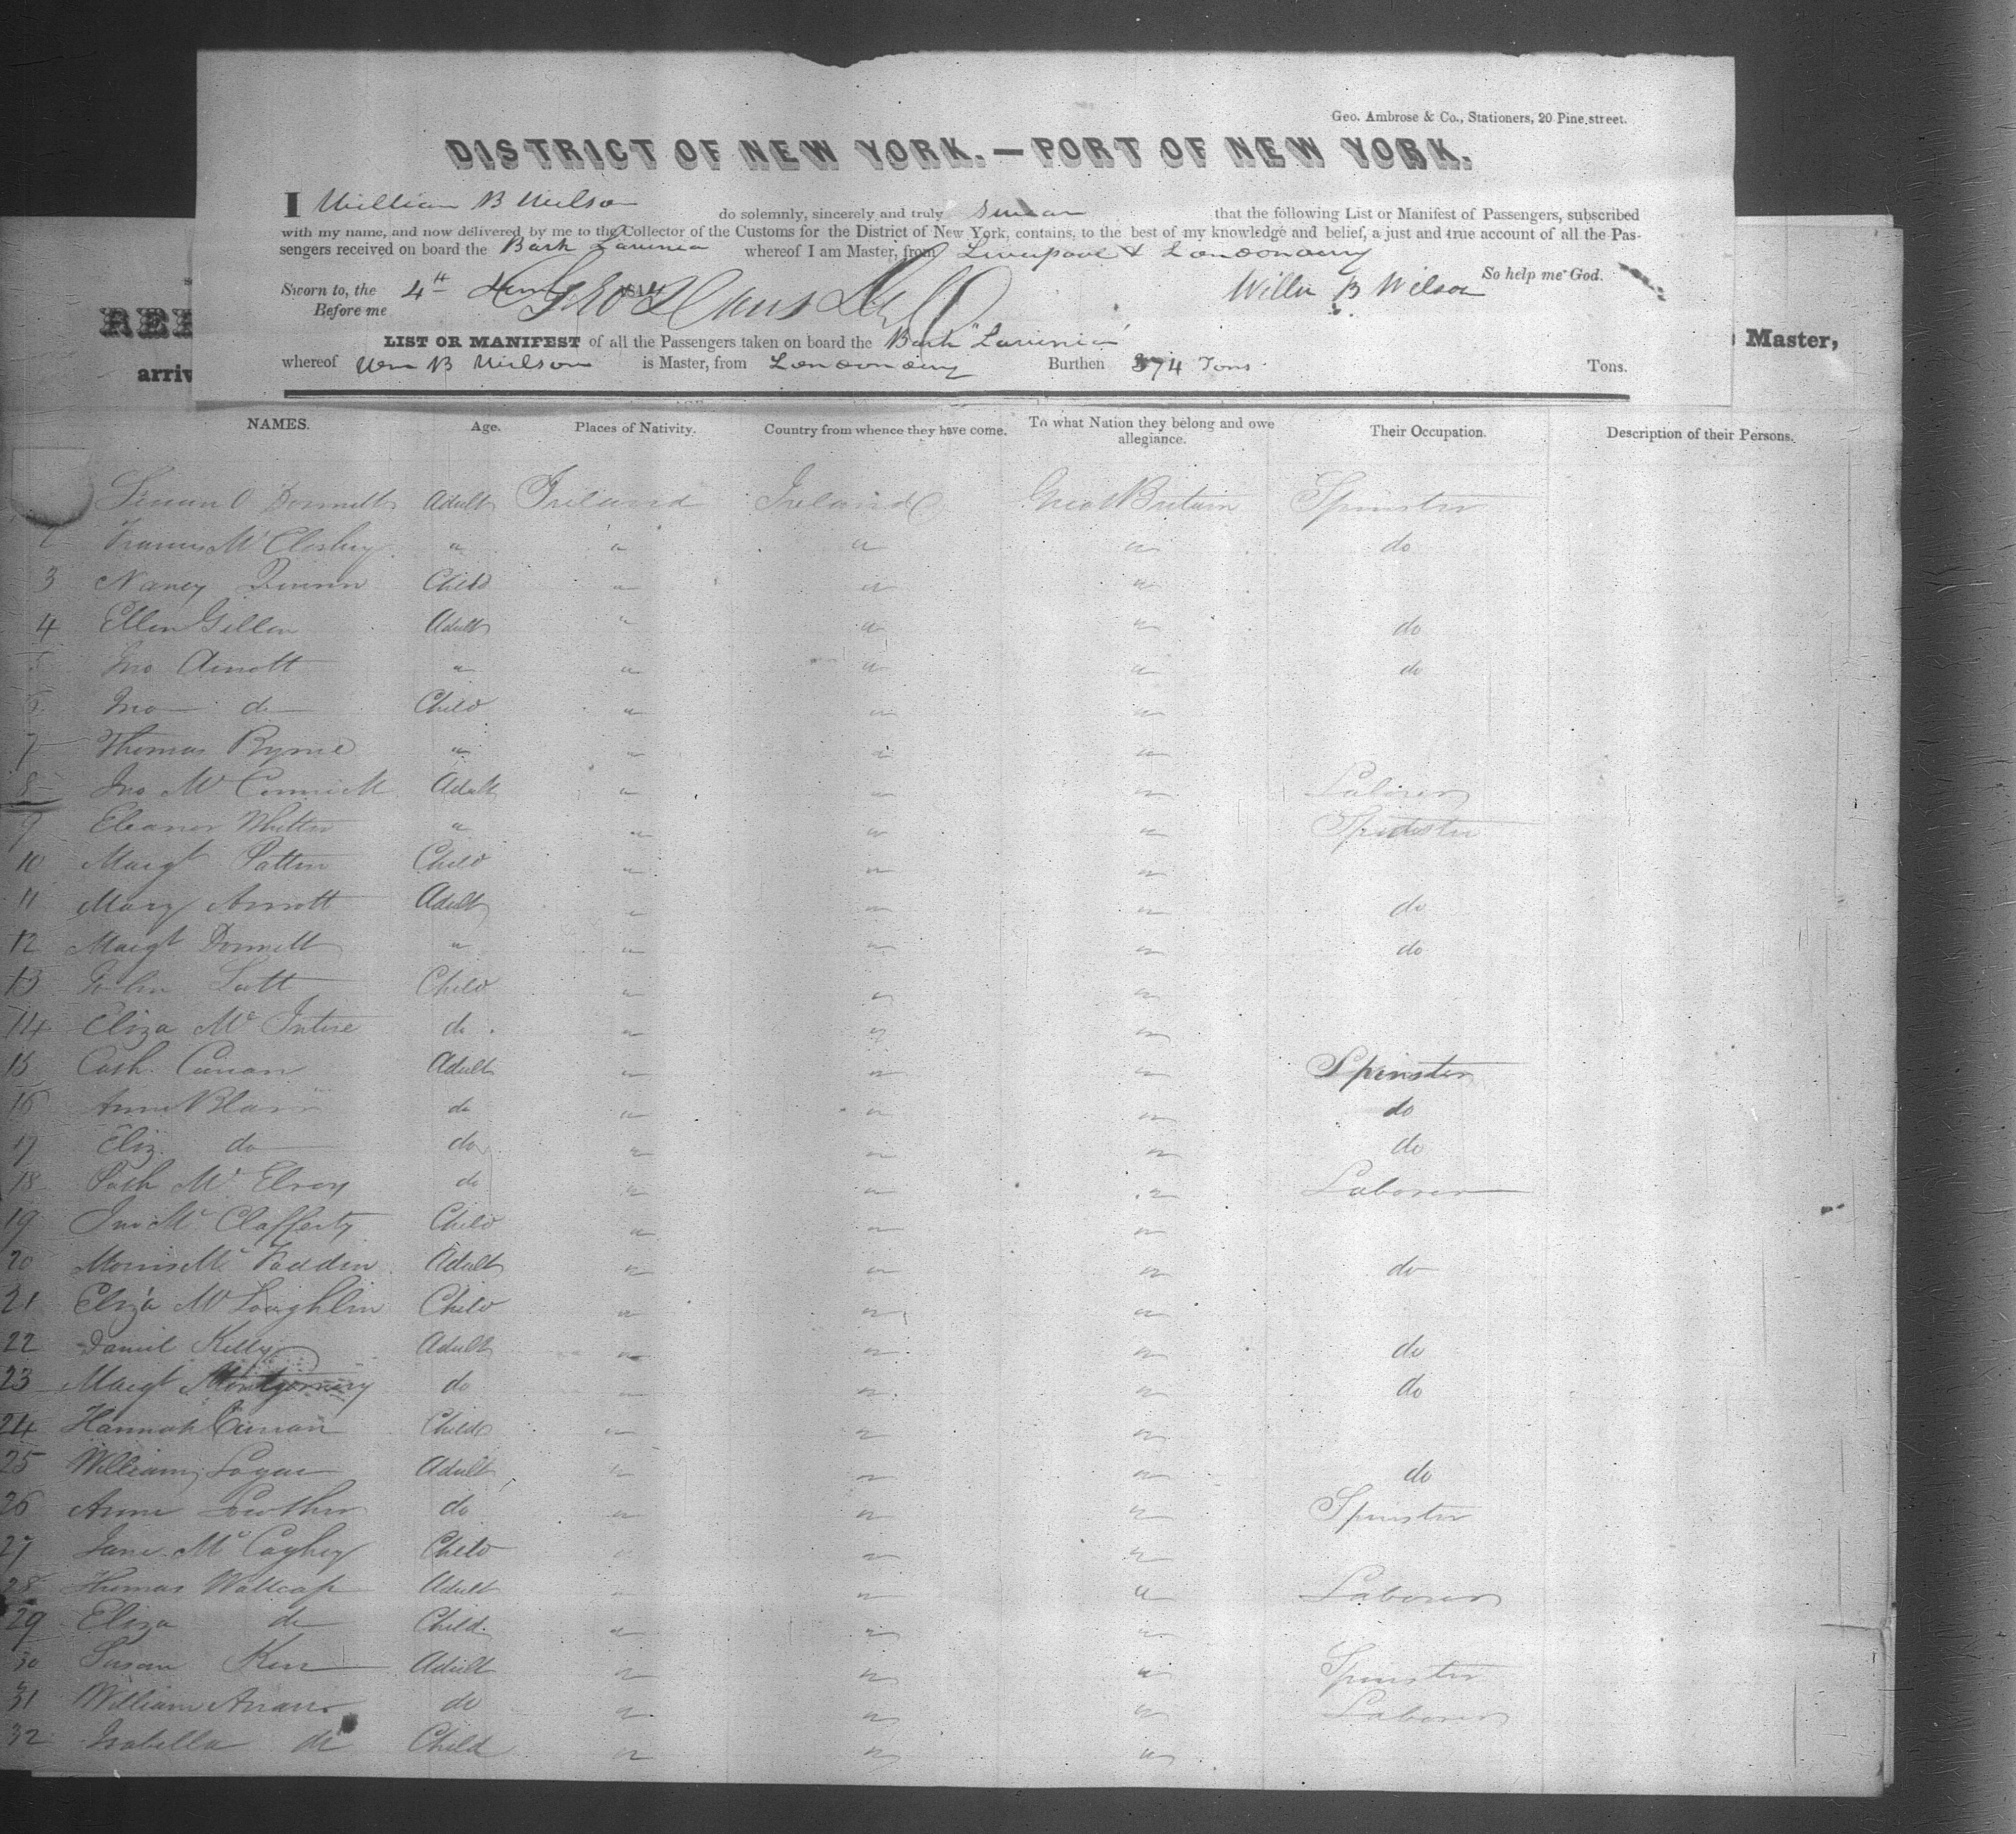 Geo. Ambrose & Co., Stationers, 20 Pine street.
DISTRICT OF NEW YORK.—PORT OF NEW YORK.
I William B Wilson do solemnly, sincerely and truly swear that the following List or Manifest of Passengers, subscribed
with my name, and now delivered by me to the Collector of the Customs for the District of New York, contains, to the best of my knowledge and belief, a just and true account of all the Pas-
sengers received on board the Bark Lavinia whereof I am Master, from Liverpool & Londonderry
So help me God.
Sworn to, the 4th
Willm B Wilson
Before me
LIST OR MANIFEST of all the Passengers taken on board the Bark "Lavinia"
whereof Wm B Wilson is Master, from Londonderry Burthen 374 Tons Tons.
REP
Master,
arriv
NAMES. Age. Places of Nativity. Country from whence they have come. To what Nation they belong and owe allegiance. Their Occupation. Description of their Persons.
Adult Ireland Ireland Great Britain Spinster
2 Frances McCloskey " " " " do
3 Nancy Quinn Child " " "
4 Ellen Gillen Adult " " " do
5 Jno Arnott " " " " do
6 Jno do Child " " "
7 Thomas Byrne " " " "
8 Jno McCormick Adult " " " Laborer
9 Eleanor " " " " Spinster
10 Margt Patton Child " " "
11 Mary Arnott Adult " " " do
12 Margt Donnell " " " " do
13 John Child " " "
14 Eliza McIntire do " " "
15 Cath. Curran Adult " " " Spinster
16 Anne Blair do " " " do
17 Eliz. do do " " " do
18 Patk McElroy do " " " Laborer
19 Jno McClafferty Child " " "
20 Morris McFadden Adult " " " do
21 Eliza McLoughlin Child " " "
22 Daniel Kelly Adult " " " do
23 Margt Montgomery do " " " do
24 Hannah Curran Child " " "
25 William Logue Adult " " " do
26 Anne Lowther do " " " Spinster
27 Jane McCaghey Child " " "
28 Thomas Adult " " " Laborer
29 Eliza do Child " " "
30 Susan Kerr Adult " " " Spinster
31 William do " " " Laborer
32 Isabella do Child " " "